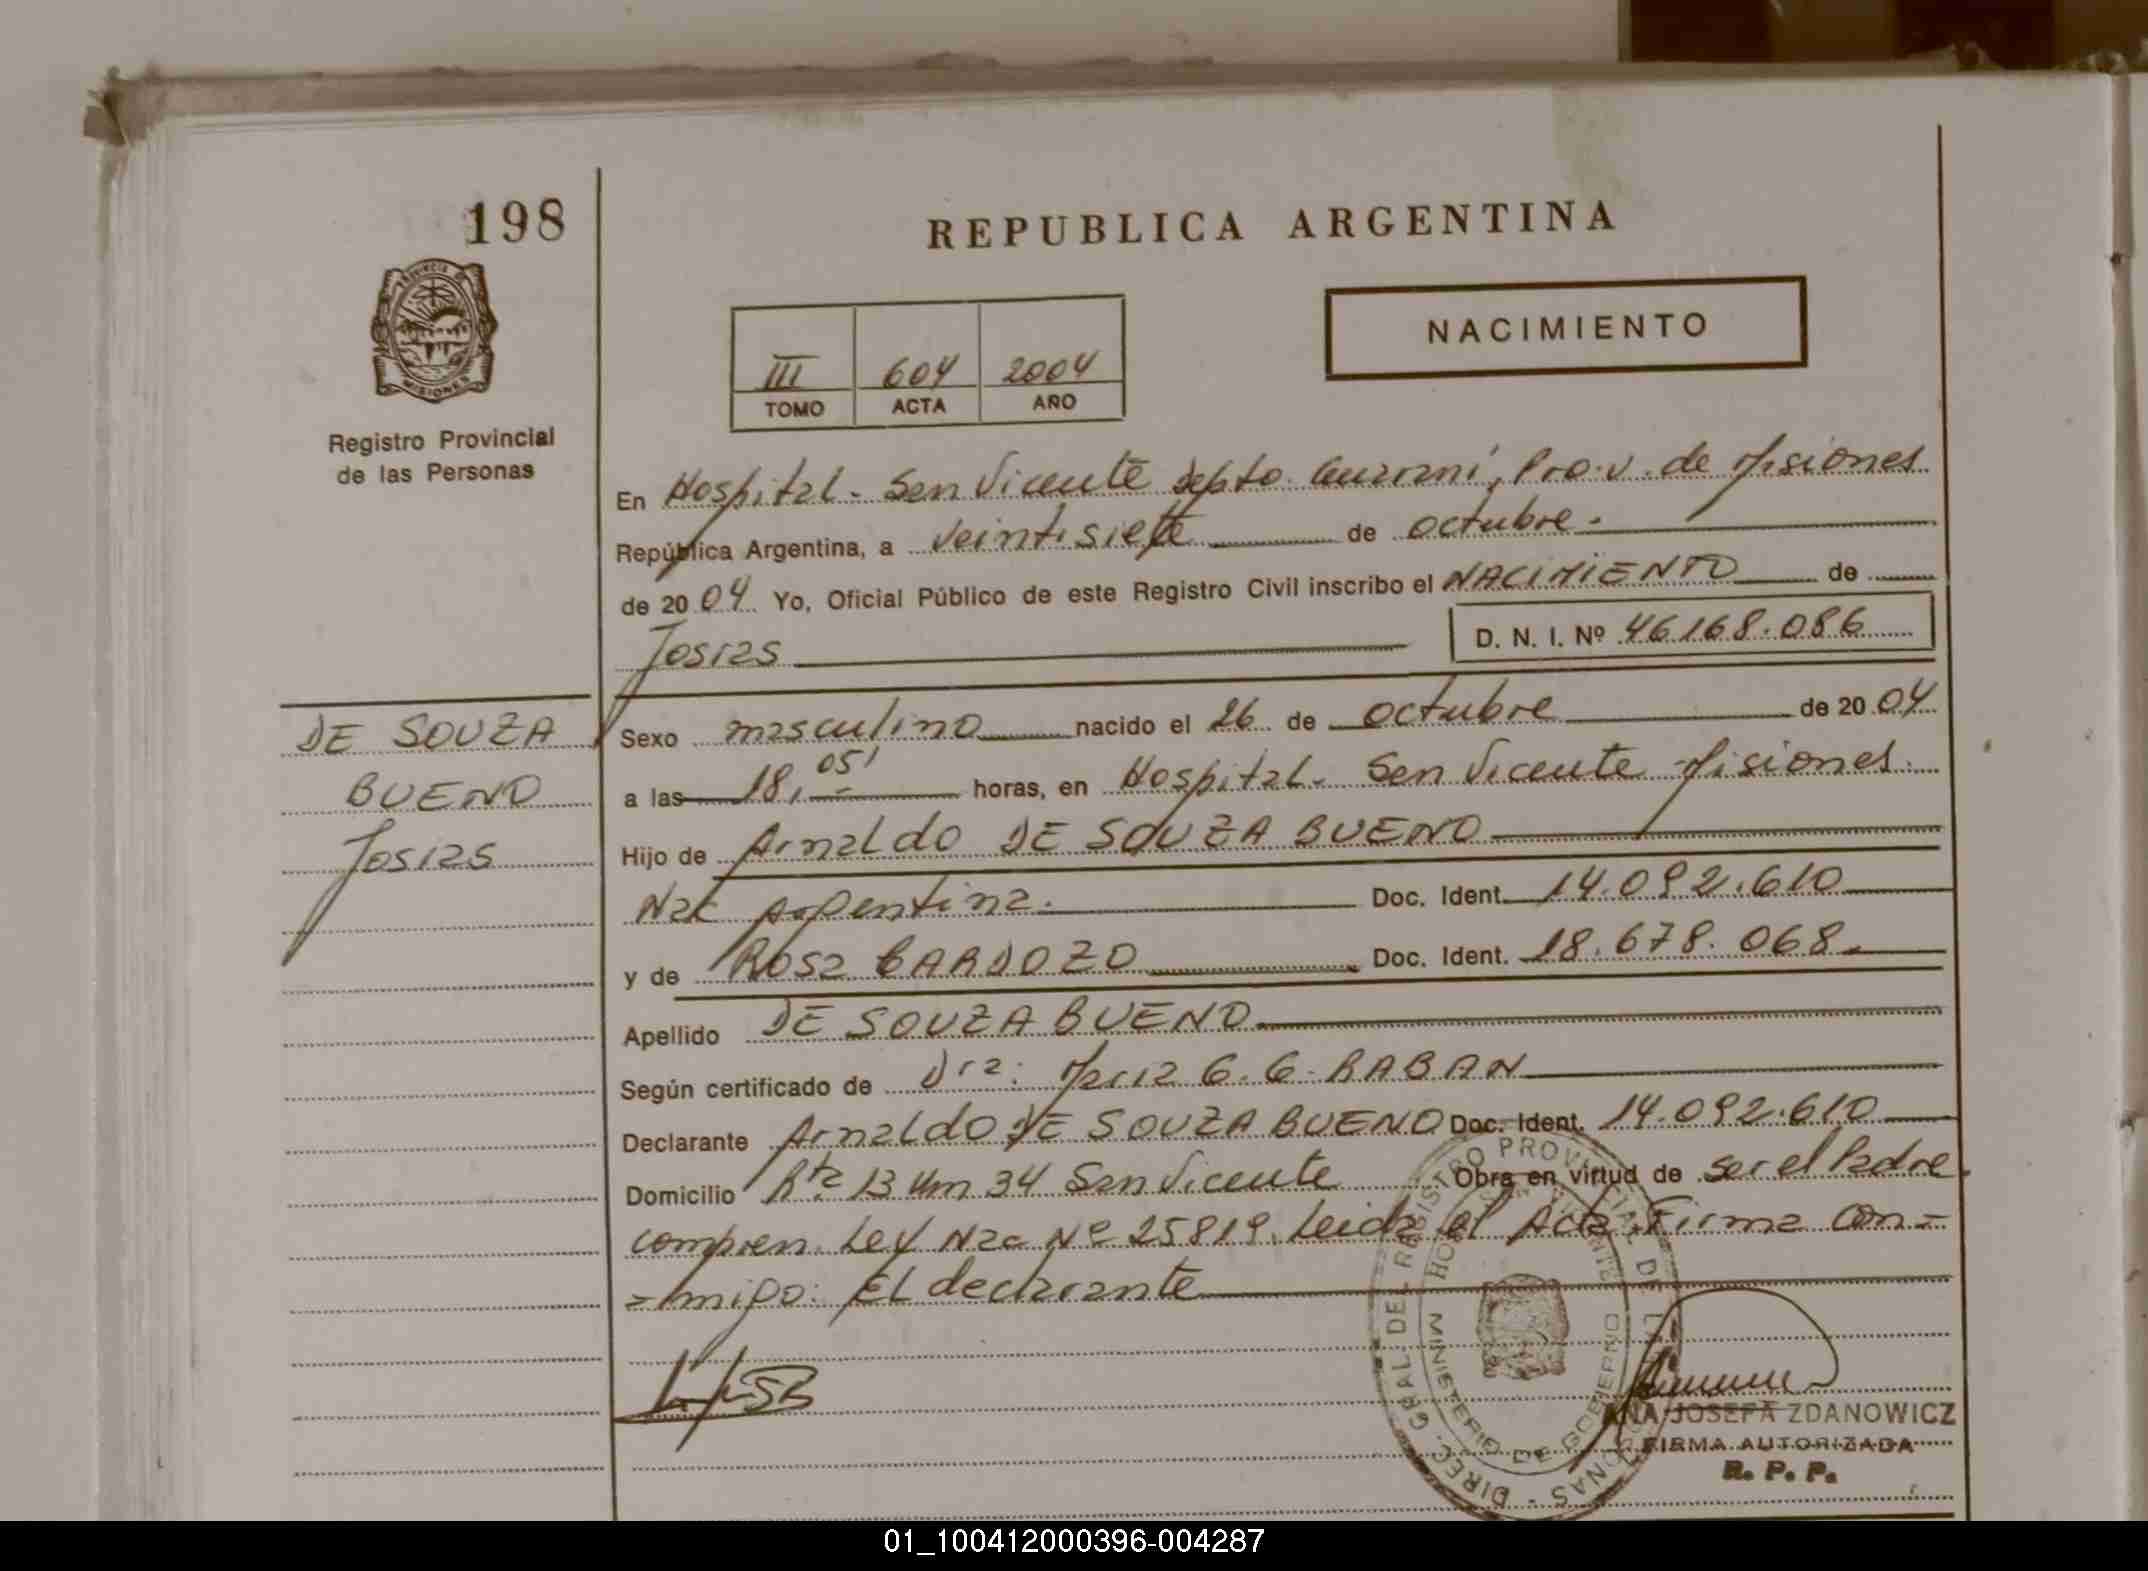 198
REPUBLICA ARGENTINA
PROVINCIA DE
MISIONES
Registro Provincial
de las Personas
NACIMIENTO
III 604 2004
TOMO ACTA AÑO
En Hospital. San Vicente Depto. Guarani, Prov. de Misiones
República Argentina, a veintisiete de octubre.
de 2004 Yo, Oficial Público de este Registro Civil inscribo el NACIMIENTO de
Josias D. N. I. Nº 46168.086
DE SOUZA
BUENO
Josias
Sexo masculino nacido el 26 de octubre de 2004
a las 18,05' horas, en Hospital. San Vicente Misiones.
Hijo de Arnaldo DE SOUZA BUENO
Nac Argentina. Doc. Ident. 14.092.610
y de Rosa CARDOZO Doc. Ident. 18.678.068.
Apellido DE SOUZA BUENO
Según certificado de Dra: Maria G. G. RABAN
Declarante Arnaldo DE SOUZA BUENO Doc. Ident. 14.092.610
Domicilio Rta 13 Km 34 San Vicente Obra en virtud de ser el Padre
compren. Ley Nac Nº 25819. Leida el Acta Firma Con=
=migo: El declarante
DIREC. GRAL. DEL REGISTRO PROVINCIAL DE LAS PERSONAS
MINISTERIO DE GOBIERNO
ANA JOSEFA ZDANOWICZ
FIRMA AUTORIZADA
R. P. P.
01_100412000396-004287